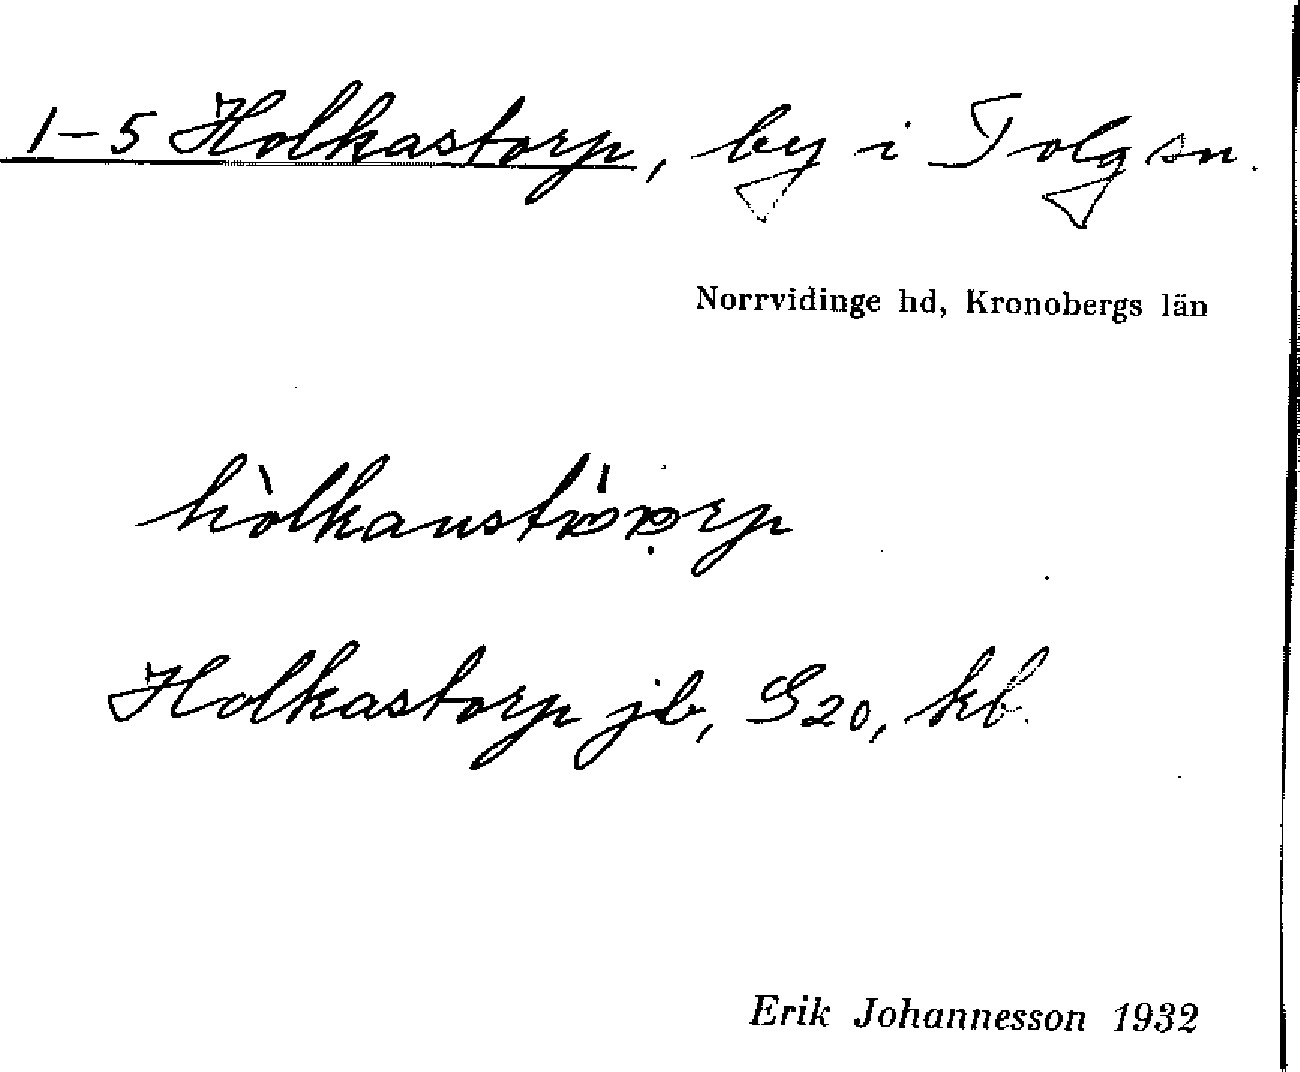 1-5 Holkastorp, by i Tolg sn.
Norrvidinge hd, Kronobergs län
Holkastorp jb, G20, kb.
Erik Johannesson 1932